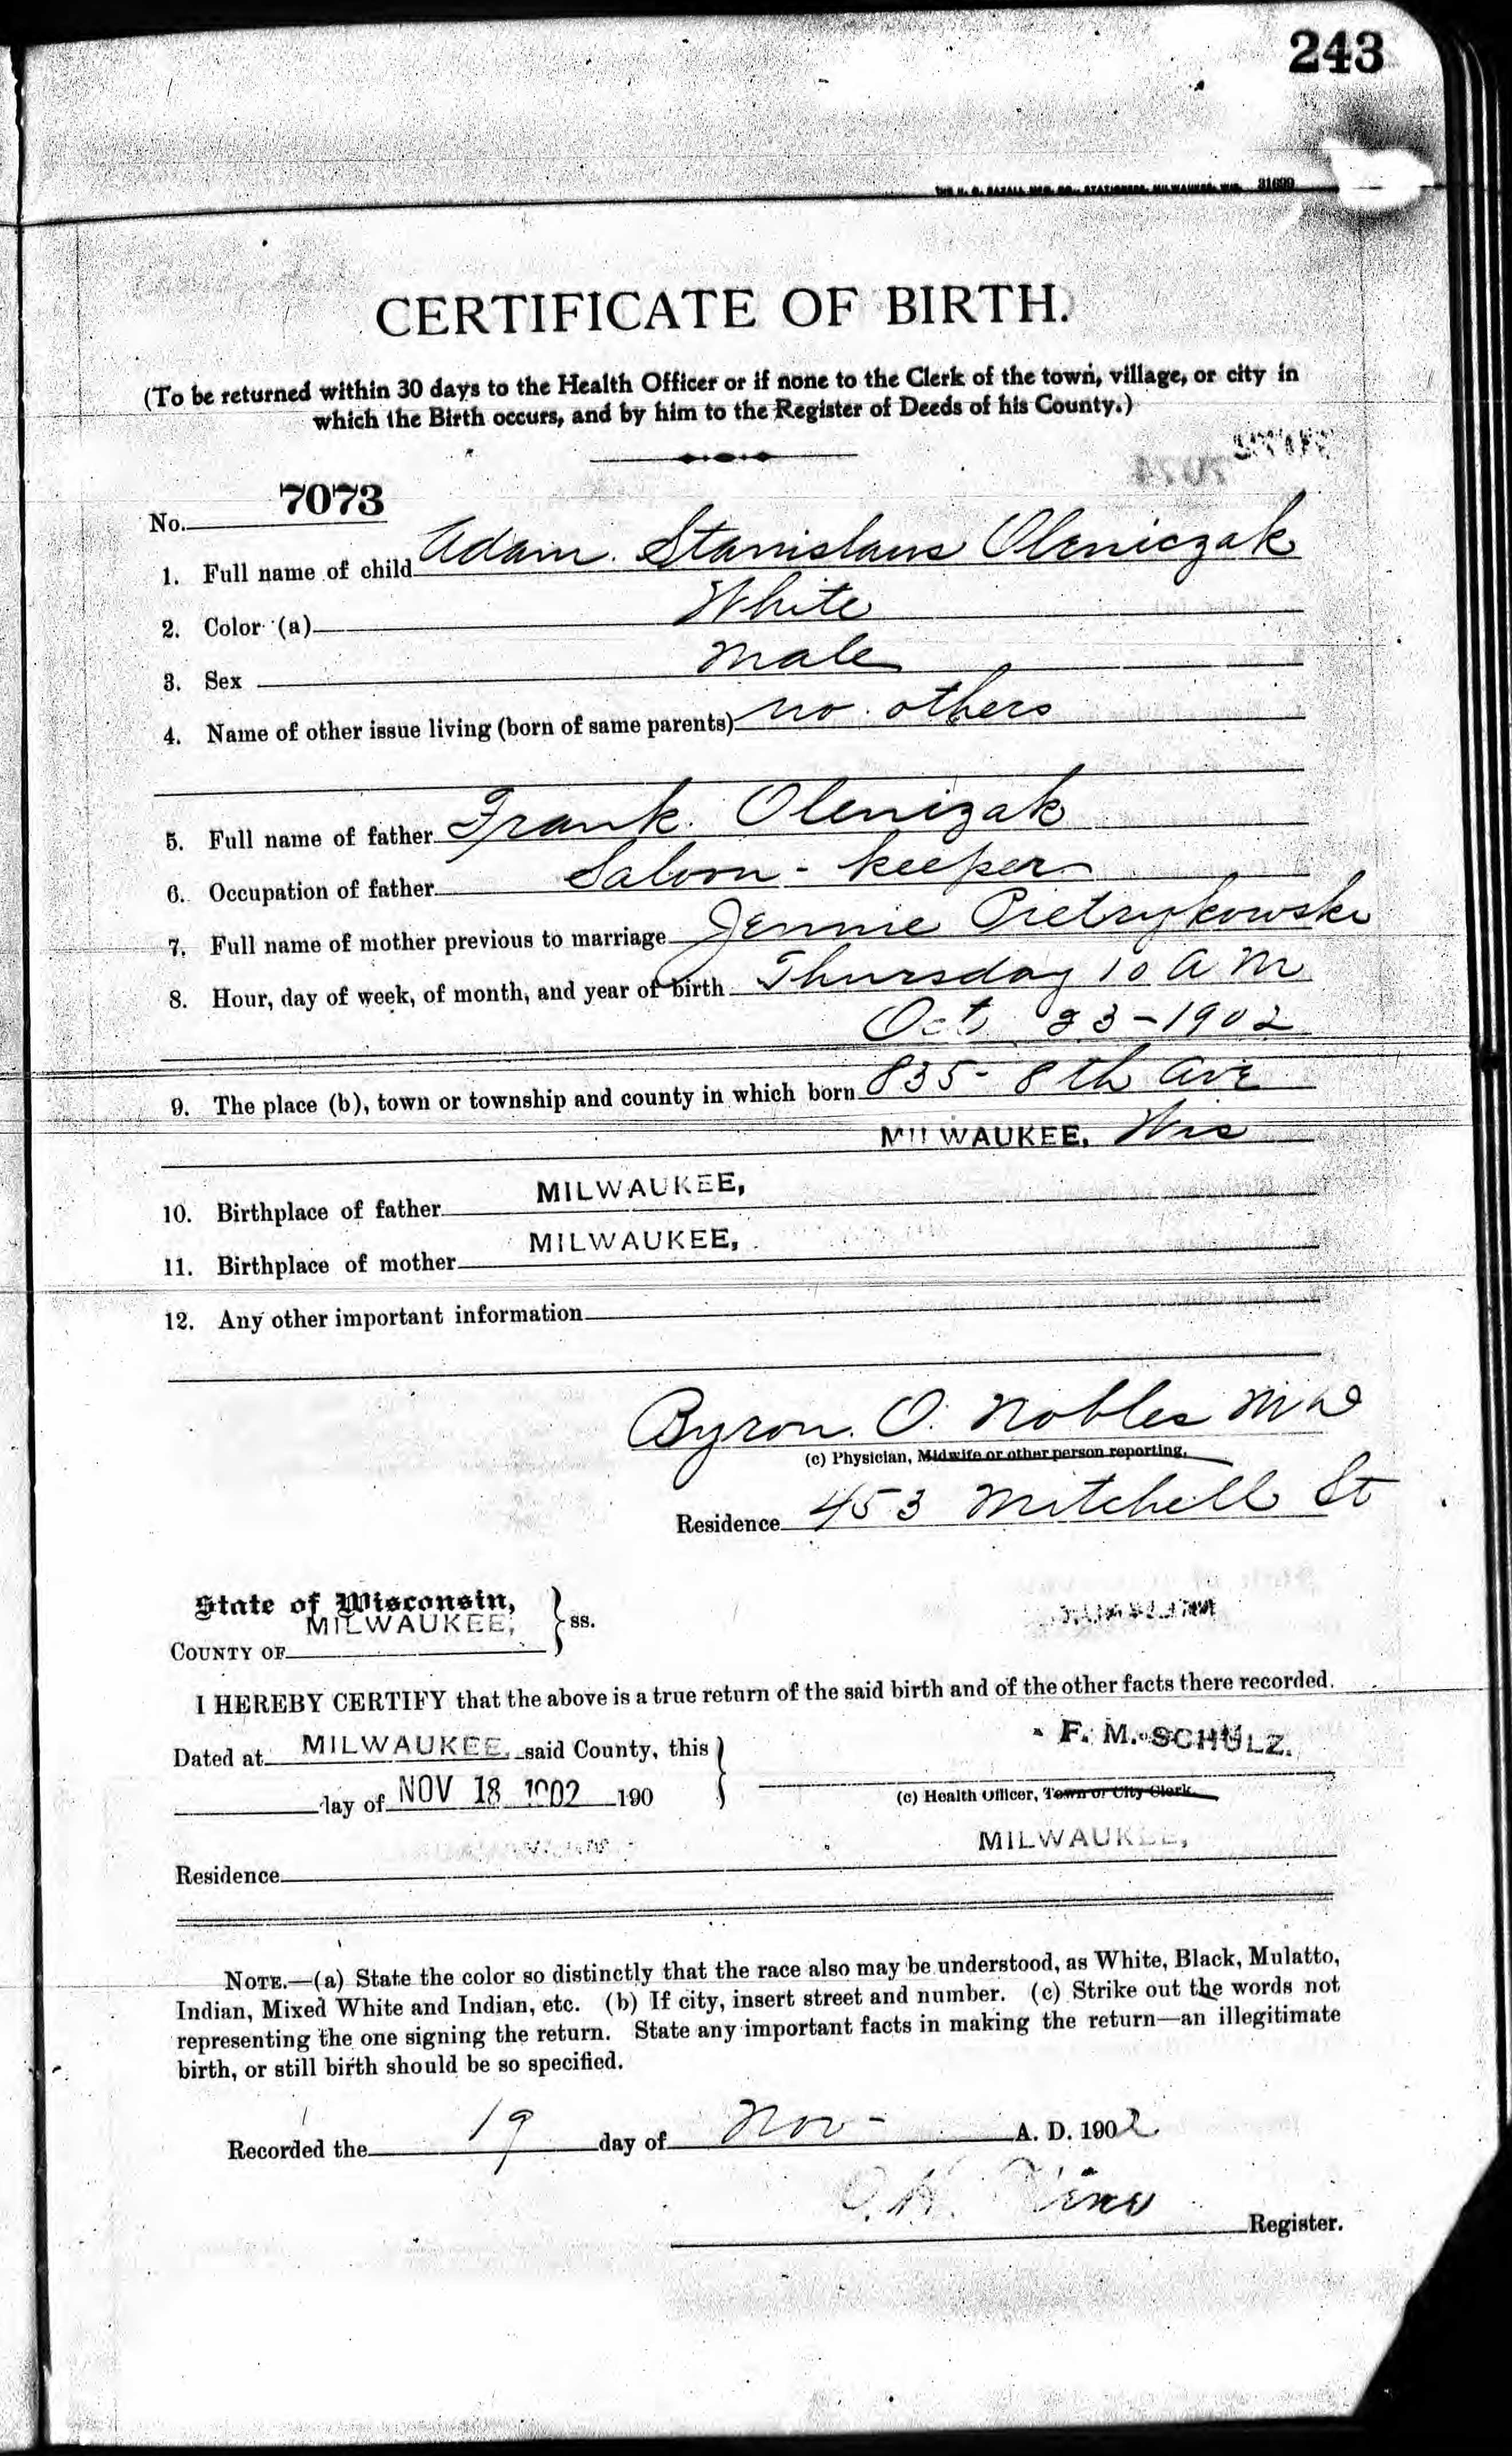 243
THE H. G. RAZALL MFG. CO., STATIONERS, MILWAUKEE, WIS. 31699
CERTIFICATE OF BIRTH.
(To be returned within 30 days to the Health Officer or if none to the Clerk of the town, village, or city in
which the Birth occurs, and by him to the Register of Deeds of his County.)
No. 7073
1. Full name of child Adam Stanislaus Oleniczak
2. Color (a) White
3. Sex Male
4. Name of other issue living (born of same parents) no others
5. Full name of father Frank Olenizak
6. Occupation of father Saloon-keeper
7. Full name of mother previous to marriage Jennie Pietrykowski
8. Hour, day of week, of month, and year of birth Thursday 10 A M
Oct 23-1902
9. The place (b), town or township and county in which born 835- 8th Ave
MILWAUKEE, Wis
10. Birthplace of father MILWAUKEE,
11. Birthplace of mother MILWAUKEE,
12. Any other important information
Byron O. Nobles M D
(c) Physician, Midwife or other person reporting.
Residence 453 Mitchell St
State of Wisconsin,
MILWAUKEE,
COUNTY OF } ss.
I HEREBY CERTIFY that the above is a true return of the said birth and of the other facts there recorded.
F. M. SCHULZ.
Dated at MILWAUKEE, said County, this
day of NOV 18 1902 190
(c) Health Officer, Town or City Clerk.
MILWAUKEE,
Residence
NOTE.—(a) State the color so distinctly that the race also may be understood, as White, Black, Mulatto,
Indian, Mixed White and Indian, etc. (b) If city, insert street and number. (c) Strike out the words not
representing the one signing the return. State any important facts in making the return—an illegitimate
birth, or still birth should be so specified.
Recorded the 19 day of Nov- A. D. 1902
Register.